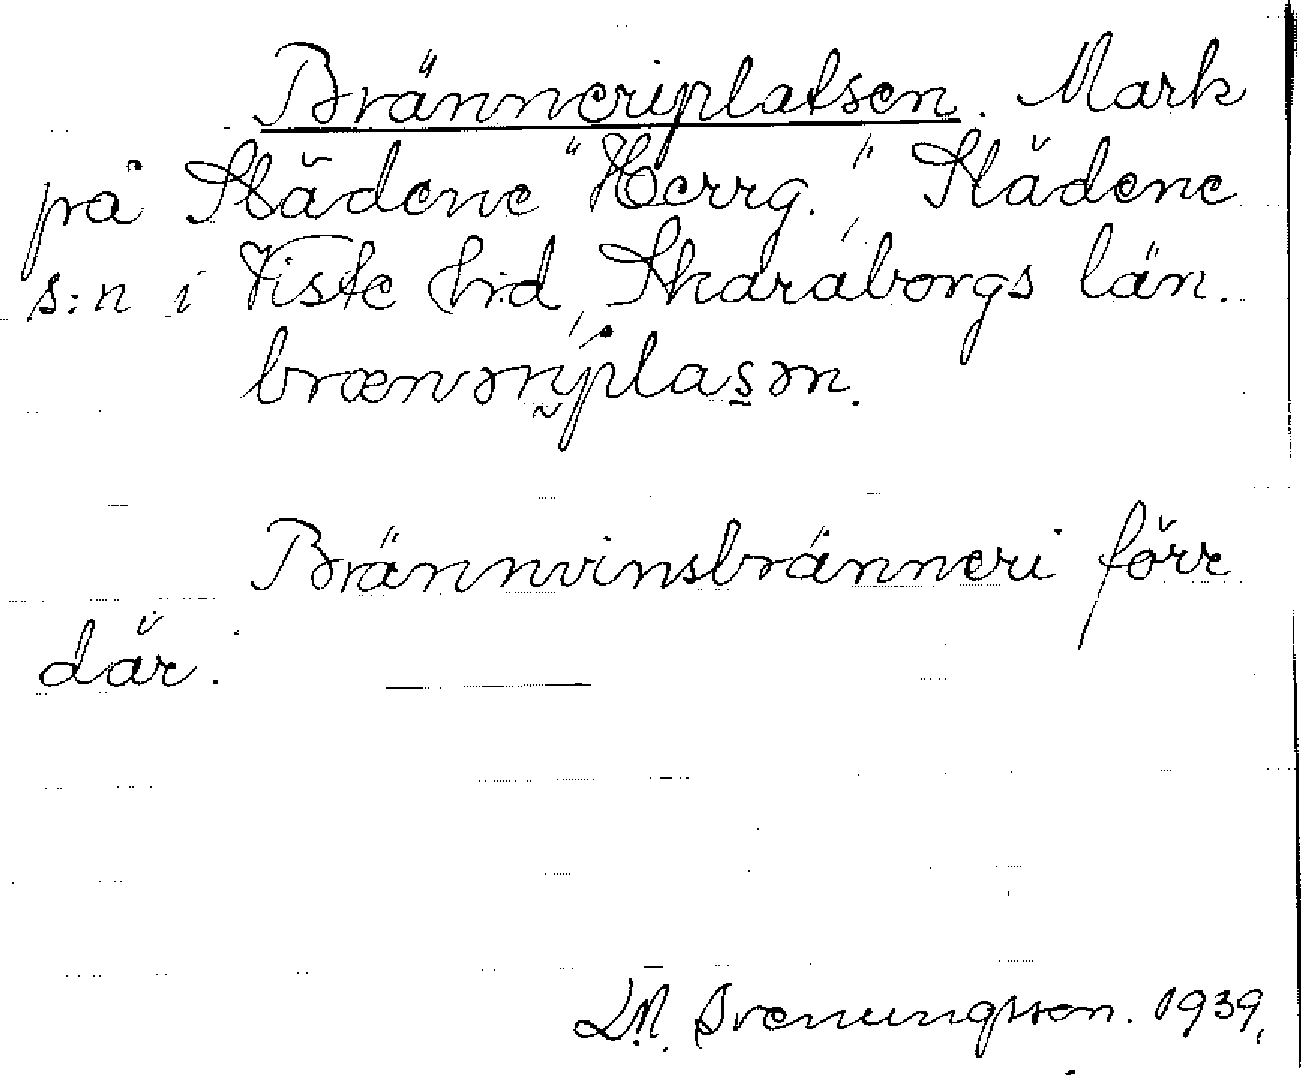 Bränneriplatsen. Mark
på Slädene "Herrg.", Slädene
s:n i Viste hd, Skaraborgs län.
brænəriplasən.
Brännvinsbränneri förr
där.
D.N. Brenungsson. 1939.